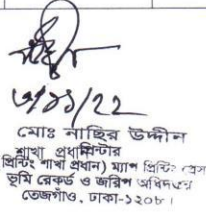 ৩/১১/২২
মোঃ নাছির উদ্দীন
শাখা প্রধান
প্রিন্টার
(প্রিন্টিং শাখা প্রধান) ম্যাপ প্রিন্টিং প্রেস
ভূমি রেকর্ড ও জরিপ অধিদপ্তর
তেজগাঁও, ঢাকা-১২০৮।